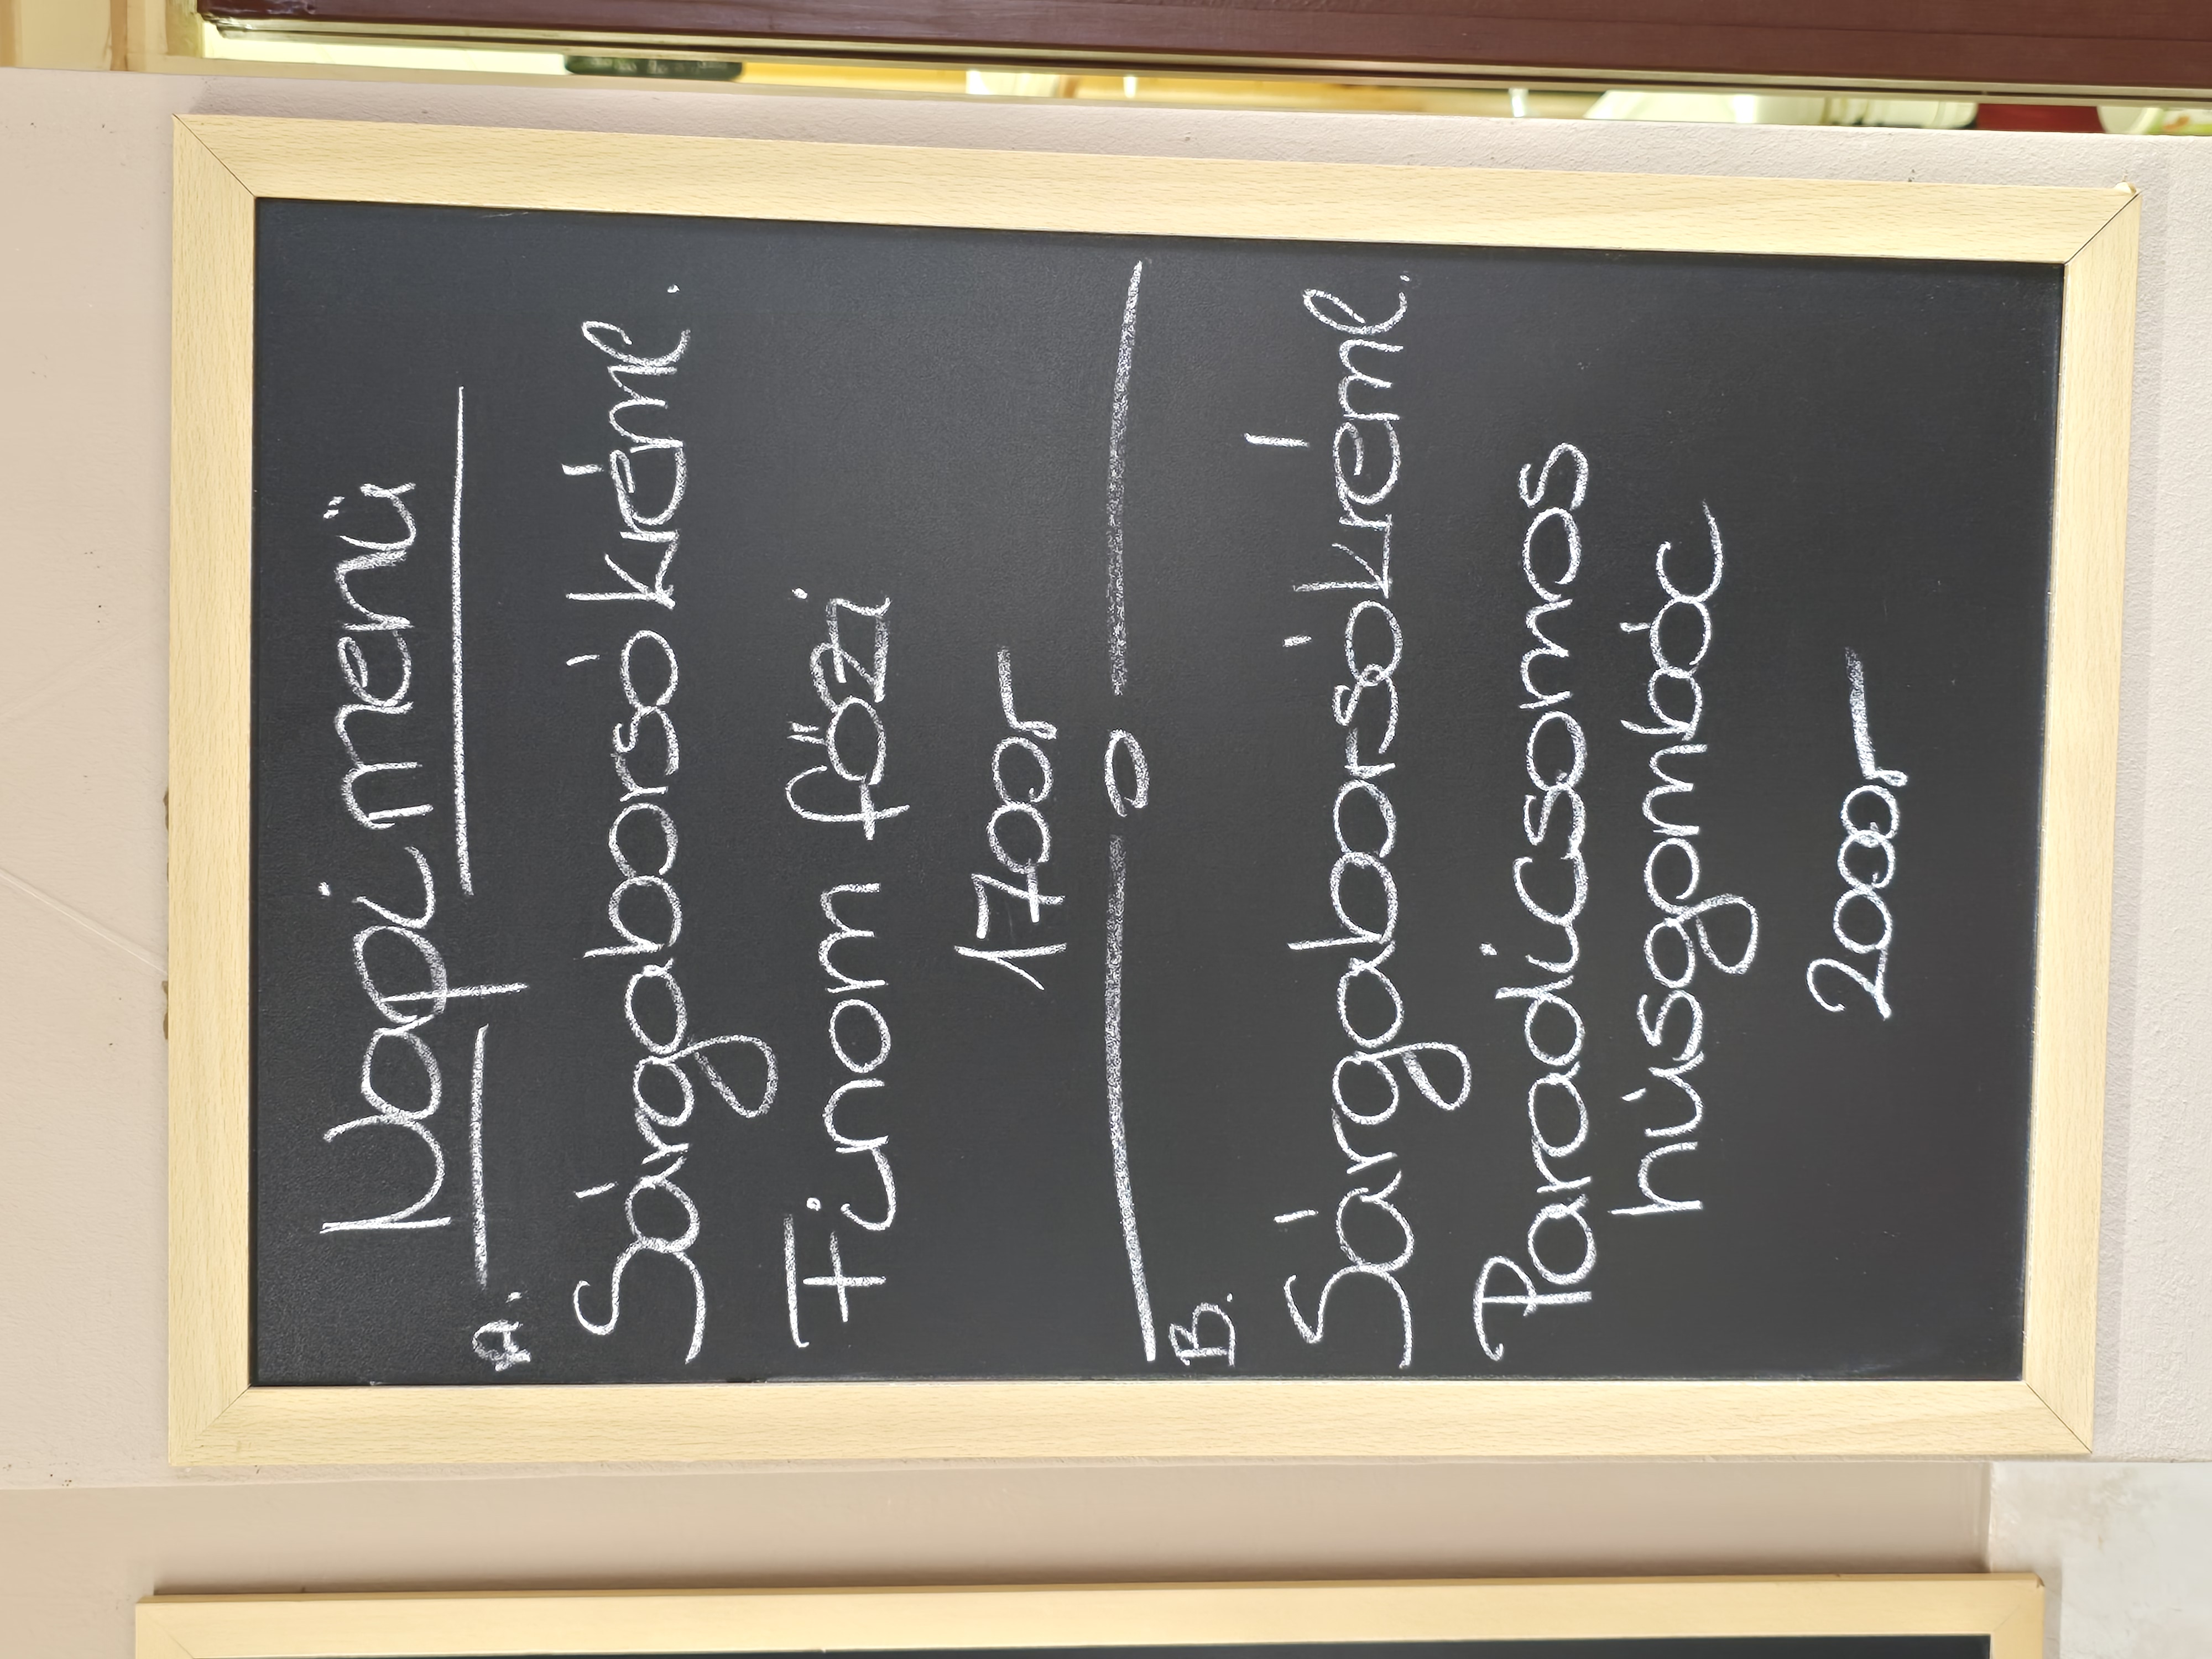 Napi menü
A.
Sárgaborsó kréml.
Finom főzi
1700,-
B.
Sárgaborsókréml.
Paradicsomos
húsgombóc
2000,-